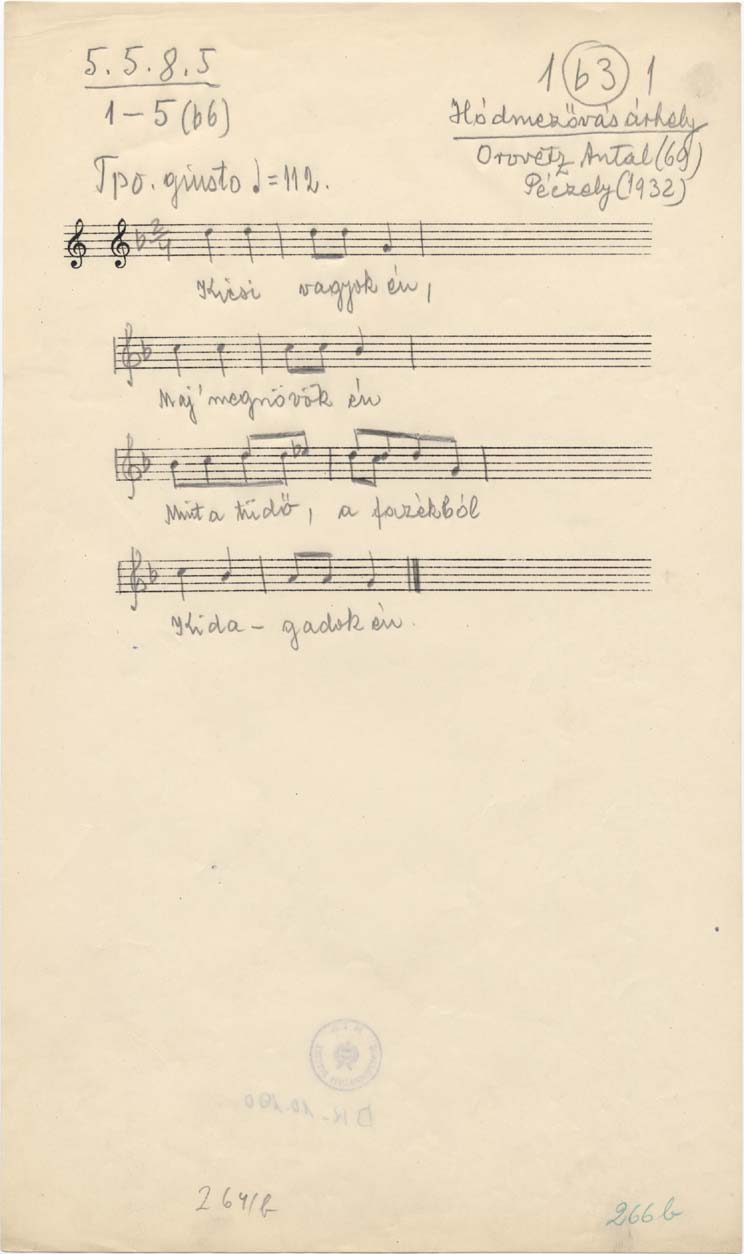 5.5.8.5
1 – 5 (b6)
1 (b3) 1
Hódmezővásárhely
Orovetz Antal (69)
Péczely (1932)
Tpo. giusto ♩=112.
Kicsi vagyok én,
Maj' megnövök én
Mint a tüdő, a fazékból
Kida – gadok én.
DK-10.190
264/b
266 b